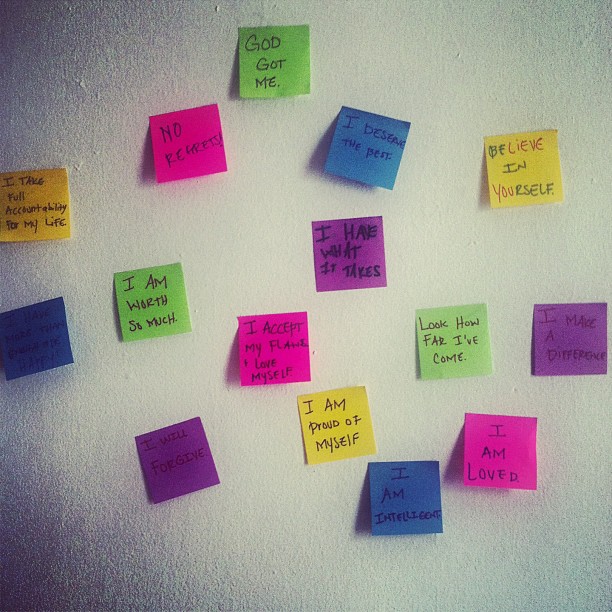 GOD
GOT
ME.
NO
REGRETS!
I DESERVE
THE BEST.
BELIEVE
IN
YOURSELF.
I TAKE
Full
Accountability
FOR MY LIFE.
I HAVE
WHAT
IT TAKES
I AM
WORTH
SO MUCH.
I ACCEPT
MY FLAWS
& LOVE
MYSELF
LOOK HOW
FAR I'VE
COME.
I MAKE
A
DIFFERENCE
I HAVE
I AM
PROUD OF
MYSELF
I WILL
FORGIVE.
I
AM
LOVED.
I
AM
INTELLIGENT.